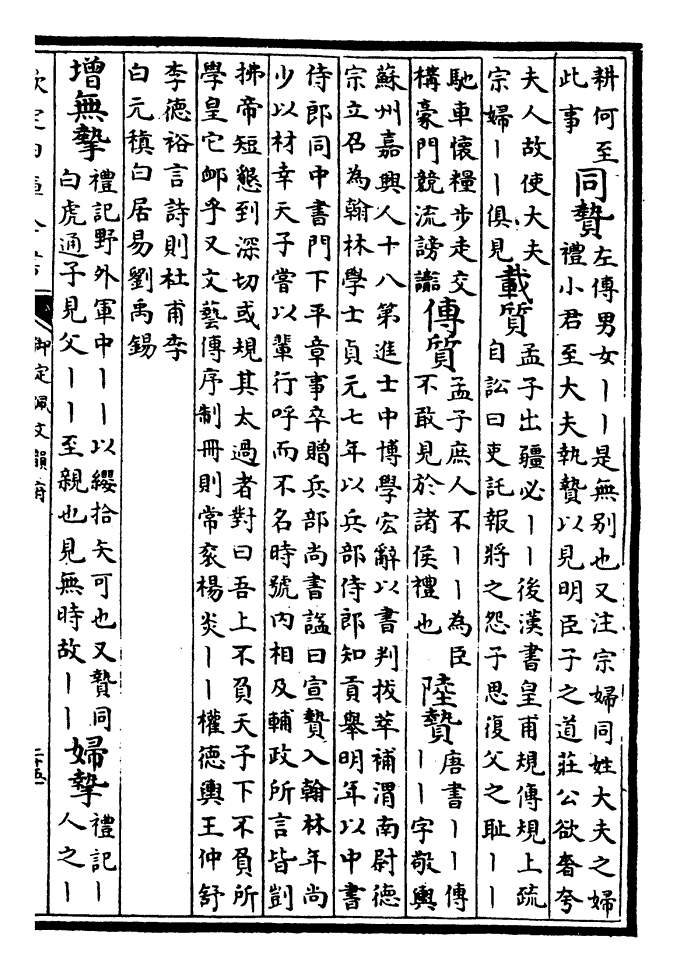 耕何至
此事
同贄
左傳男女丨丨是無别也又注宗婦同姓大夫之婦
禮小君至大夫執贄以見明臣子之道莊公欲奢夸
夫人故使大夫
宗婦丨丨俱見
載質
孟子出疆必丨丨後漢書皇甫規傳規上疏
自訟曰吏託報將之怨子思復父之恥丨丨
馳車懷糧步走交
構豪門競流謗讟
傳質
孟子庶人不丨丨為臣
不敢見於諸侯禮也
陸贄
唐書丨丨傳
丨丨字敬輿
蘇州嘉興人十八第進士中博學宏辭以書判拔萃補渭南尉德
宗立召為翰林學士貞元七年以兵部侍郎知貢舉明年以中書
侍郎同中書門下平章事卒贈兵部尚書諡曰宣贄入翰林年尚
少以材幸天子嘗以輩行呼而不名時號内相及輔政所言皆剴
拂帝短懇到深切或規其太過者對曰吾上不負天子下不負所
學皇它卹乎又文藝傳序制冊則常衮楊炎丨丨權德輿王仲舒
李德裕言詩則杜甫李
白元稹白居易劉禹錫
增無摯
禮記野外軍中丨丨以纓拾矢可也又贄同
白虎通子見父丨丨至親也見無時故丨丨
婦摯
禮記丨
人之丨
御定佩文韻府